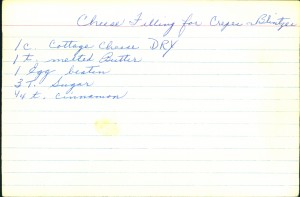 Cheese Filling for Crepes & Blintzes
1 c. Cottage Cheese DRY
1 t. melted Butter
1 Egg beaten
3 T. Sugar
1/4 t. cinnamon